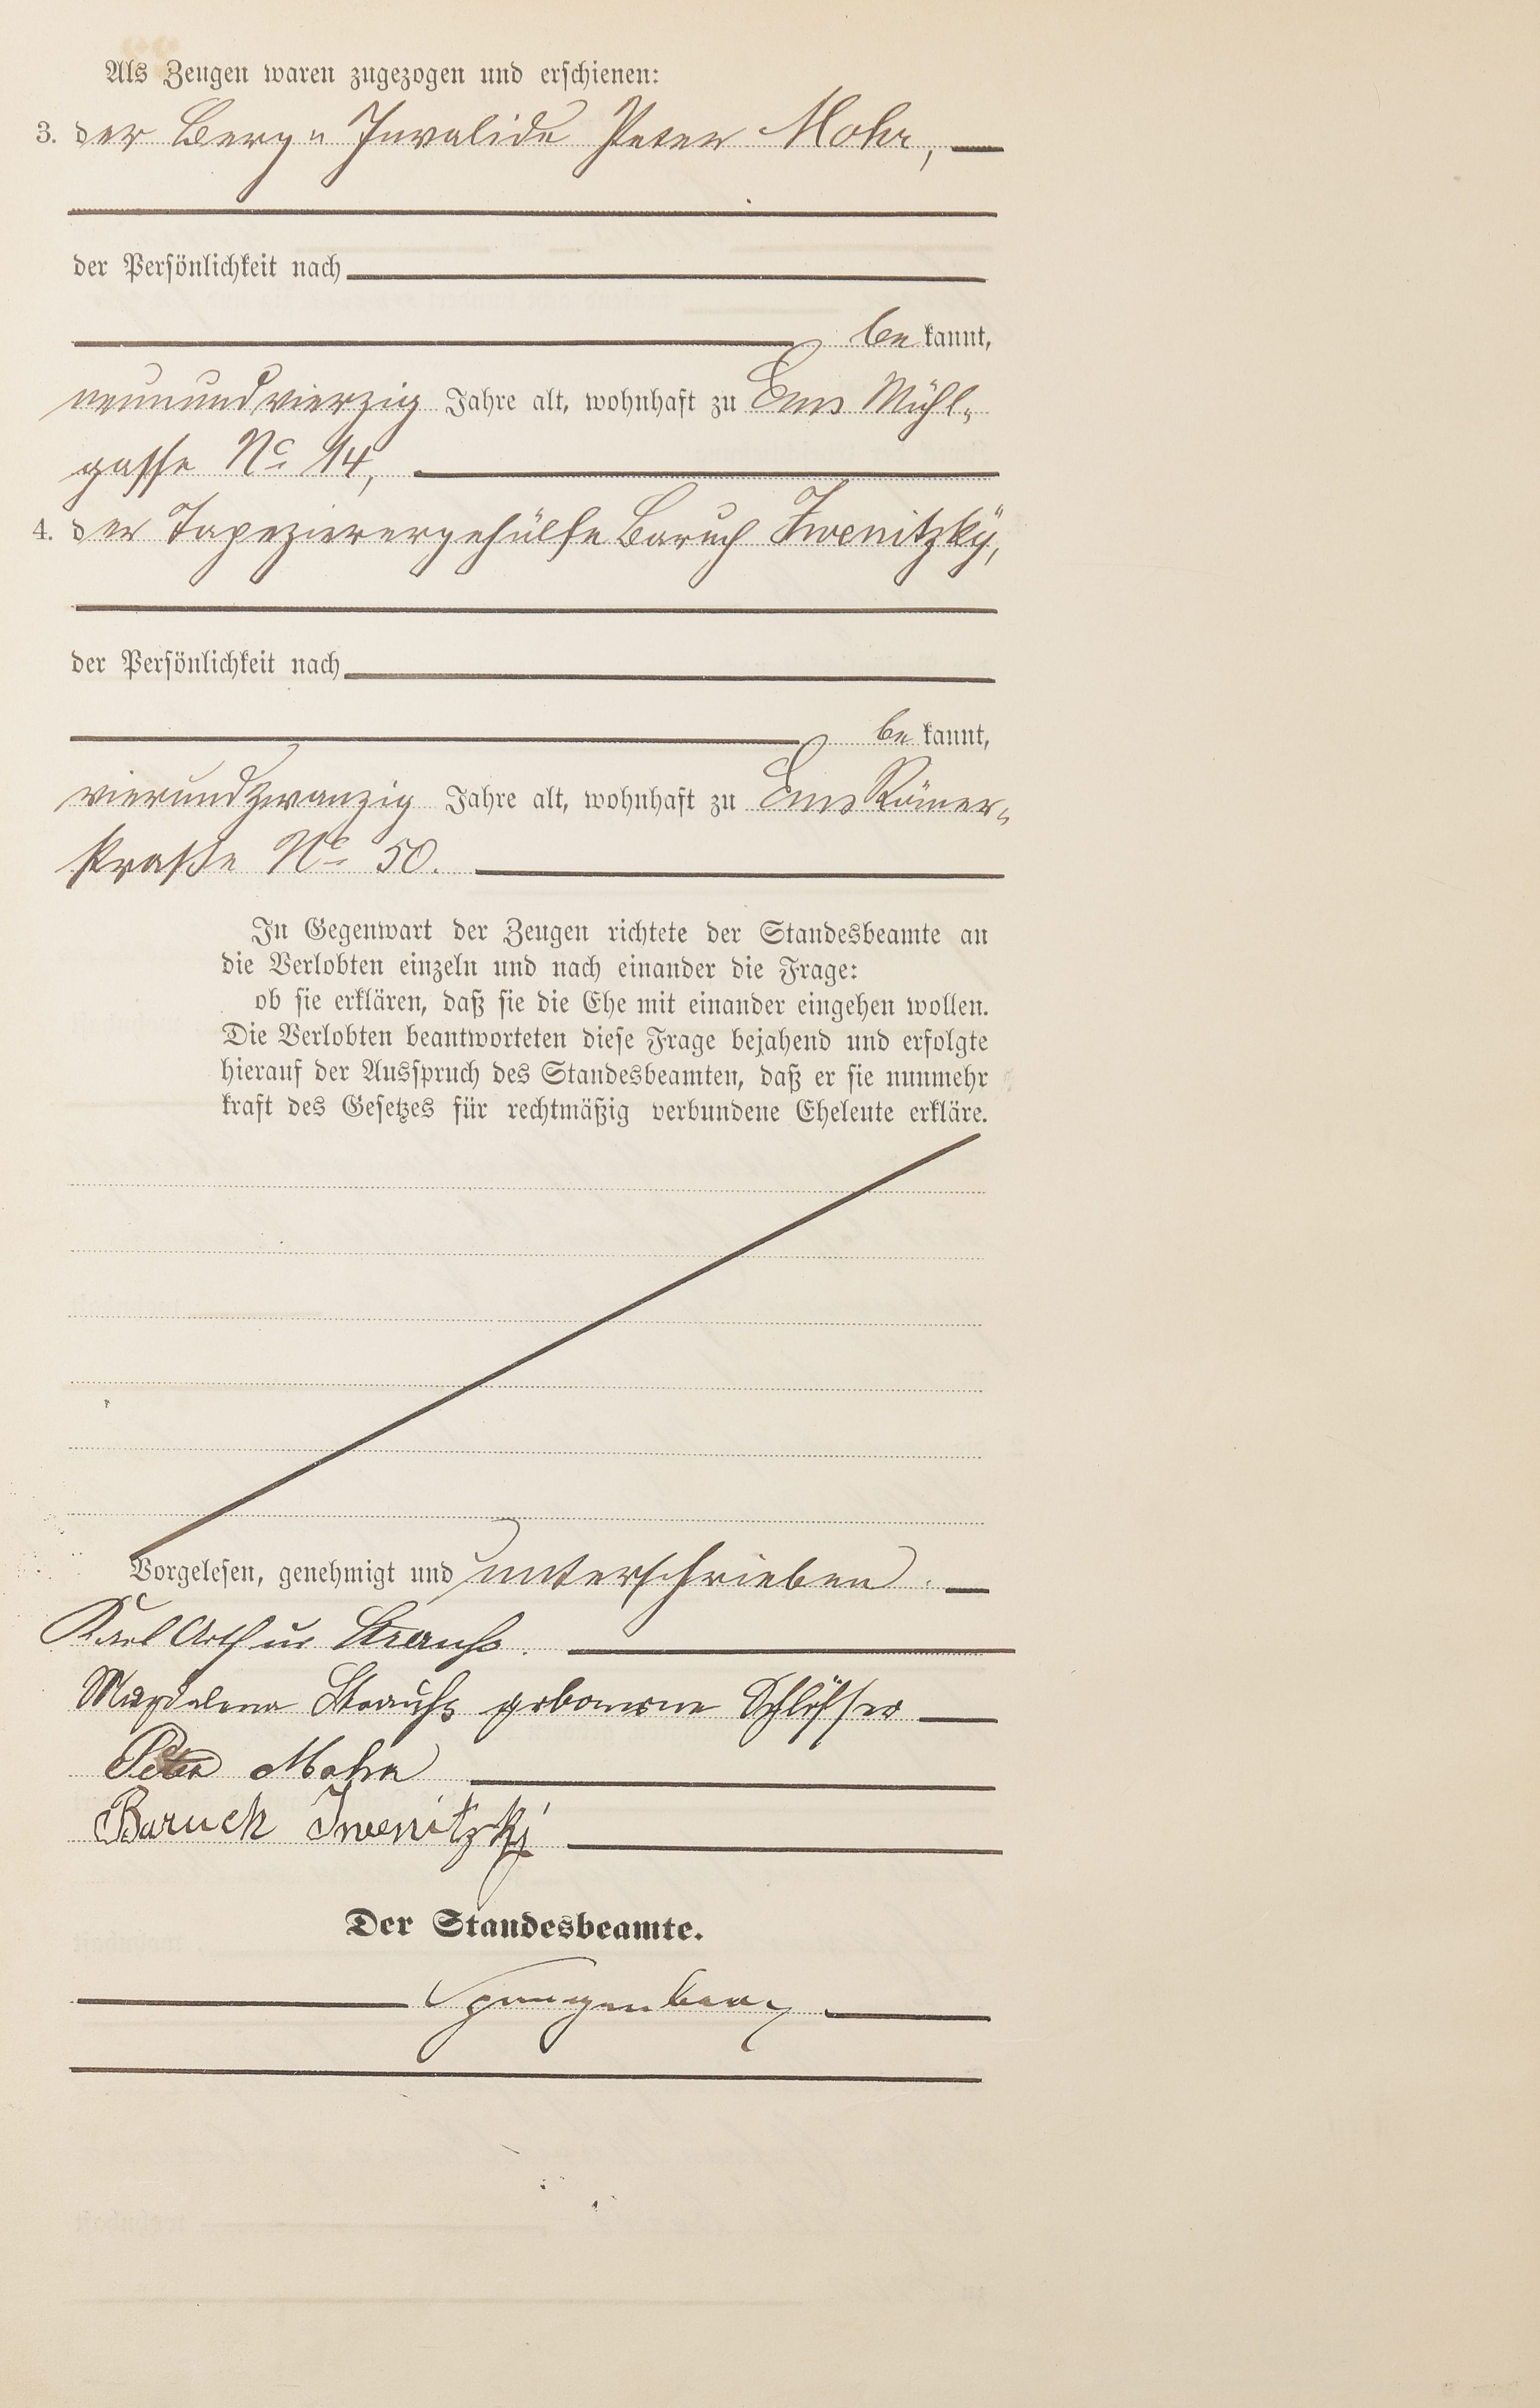 Als Zeugen waren zugezogen und erschienen:
3. der Berg- Invalide Peter Mohr,
der Persönlichkeit nach
be kannt,
neunundvierzig Jahre alt, wohnhaft zu Ems Mühl-
gasse No 14,
4. der Tapezierergehülfe Baruch Iwenitzky,
der Persönlichkeit nach
be kannt,
vierundzwanzig Jahre alt, wohnhaft zu Ems Römer-
straße No 50.
In Gegenwart der Zeugen richtete der Standesbeamte an
die Verlobten einzeln und nach einander die Frage:
ob sie erklären, daß sie die Ehe mit einander eingehen wollen.
Die Verlobten beantworteten diese Frage bejahend und erfolgte
hierauf der Ausspruch des Standesbeamten, daß er sie nunmehr
kraft des Gesetzes für rechtmäßig verbundene Eheleute erkläre.
Vorgelesen, genehmigt und unterschrieben.
Karl Arthur Strauß.
Magdalena Strauß geborene Schlösser
Peter Mohr
Baruch Iwenitzki
Der Standesbeamte.
Spangenberg